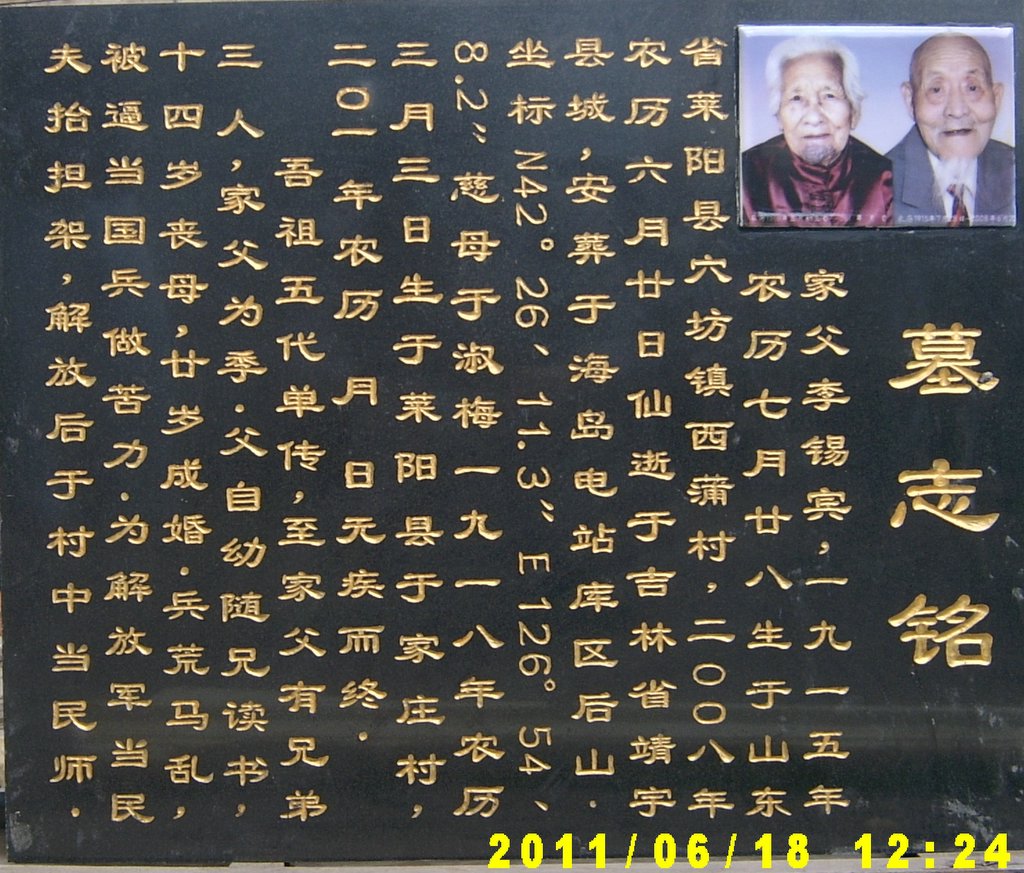 墓志铭
家父李锡宾,一九一五年
农历七月廿八生于山东
省莱阳县穴坊镇西蒲村,二〇〇八年
农历六月廿日仙逝于吉林省靖宇
县城,安葬于海岛电站库区后山.
坐标N42°26、11.3"E126°54、
8.2"慈母于淑梅一九一八年农历
三月三日生于莱阳县于家庄村,
二〇一 年农历 月 日无疾而终.
吾祖五代单传,至家父有兄弟
三人,家父为季.父自幼随兄读书,
十四岁丧母,廿岁成婚.兵荒马乱,
被逼当国兵做苦力.为解放军当民
夫抬担架,解放后于村中当民师.
2011/06/18 12:24